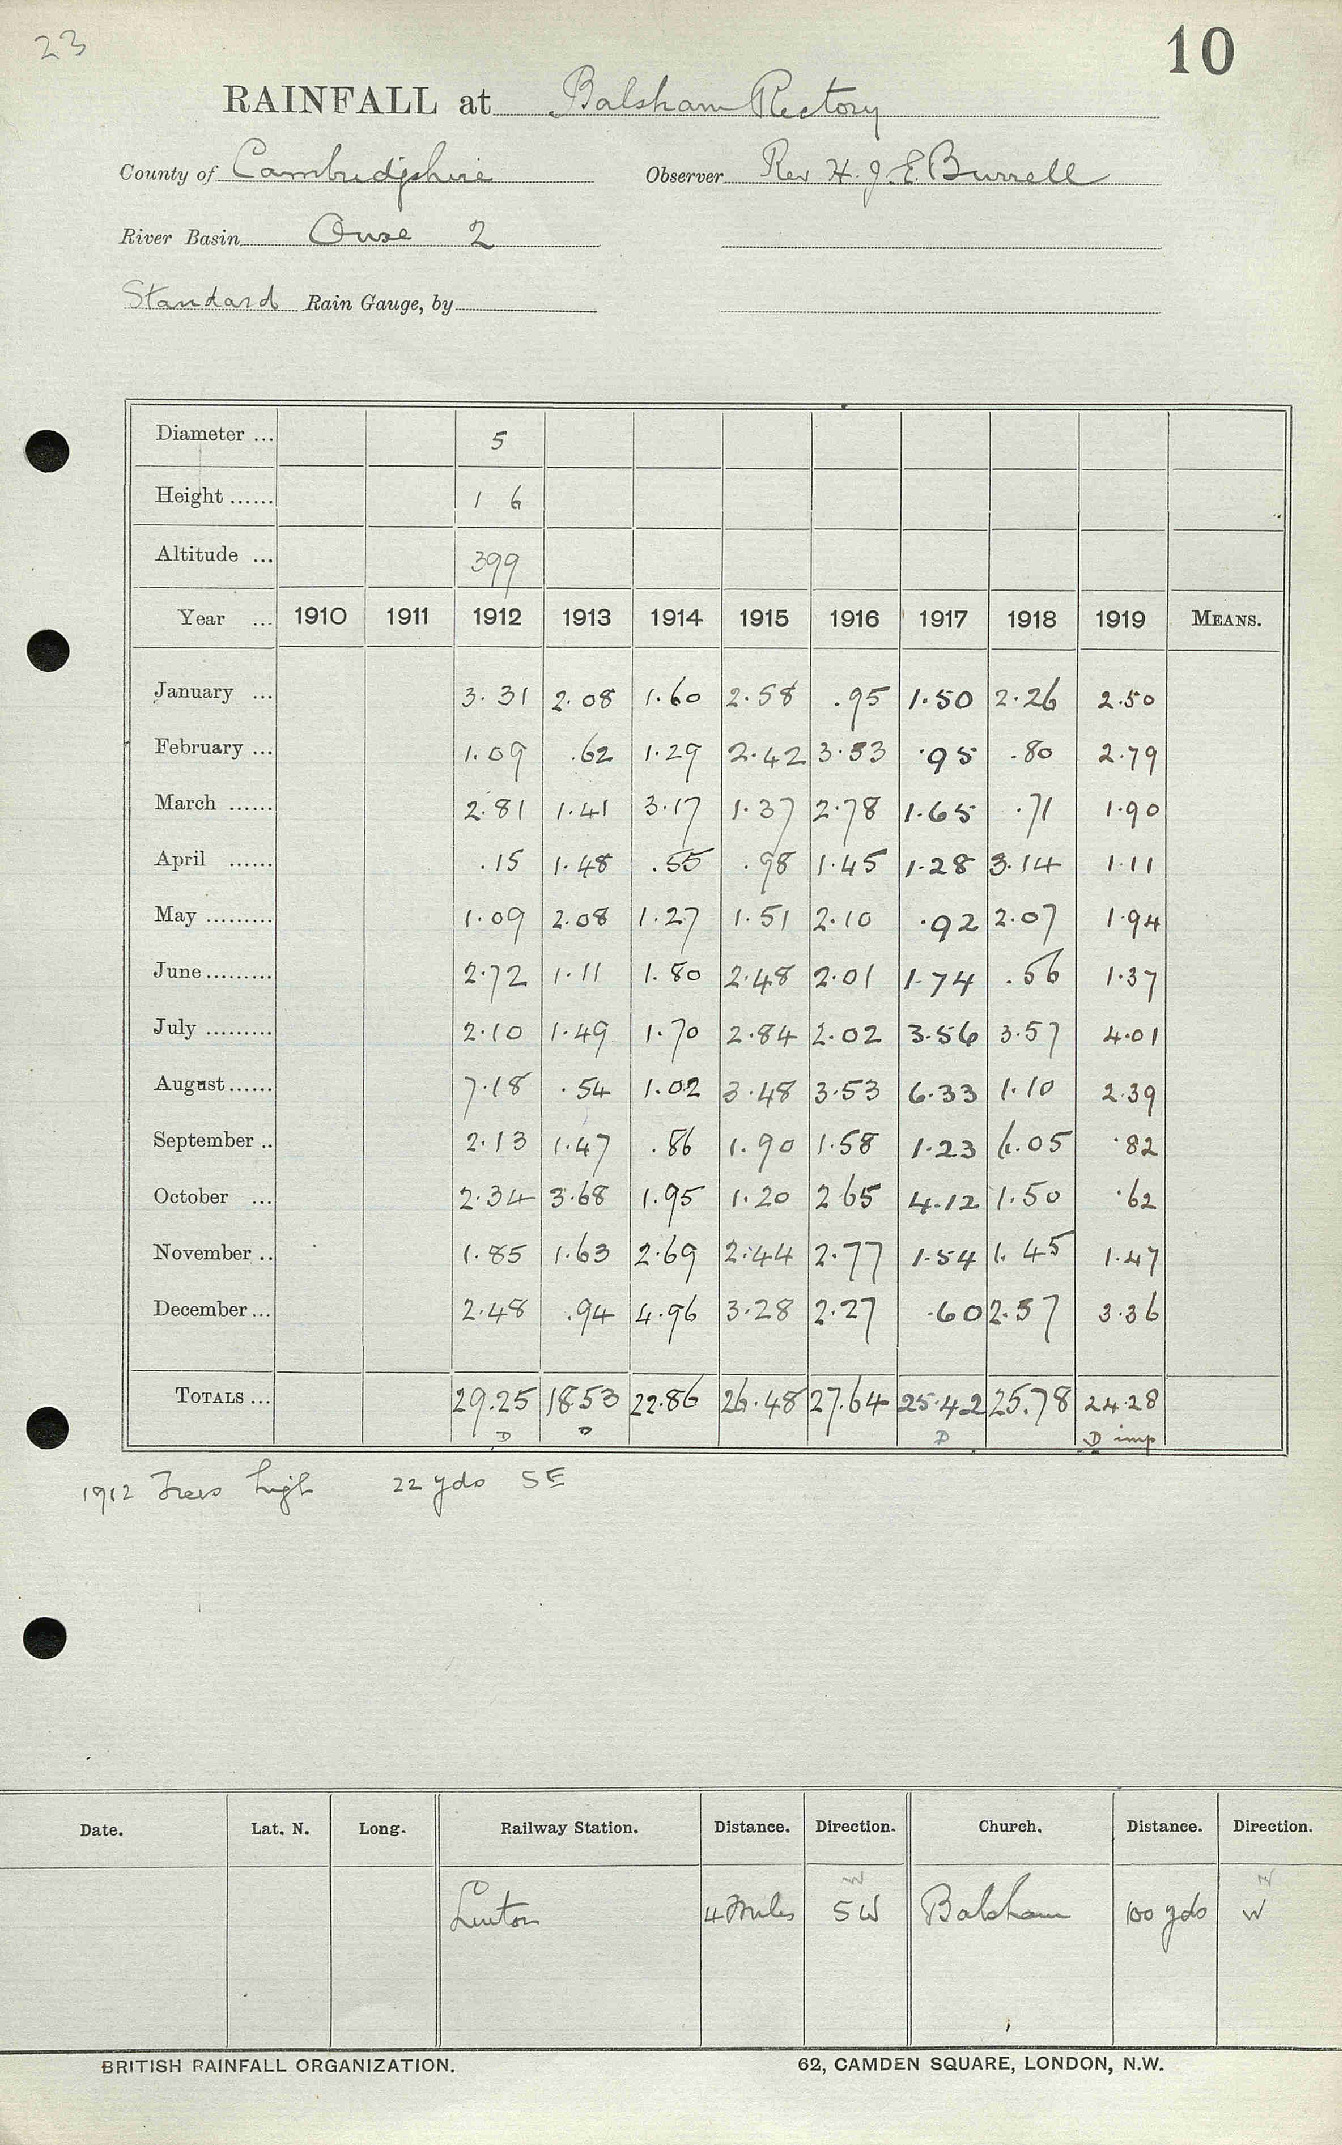 23
10
RAINFALL at Balsham Rectory
County of Cambridgshire Observer Rev H. J. E. Burrell
River Basin Ouse 2
Standard Rain Gauge, by
Diameter ... 5
Height ...... 1 6
Altitude ... 399
Year ... 1910 1911 1912 1913 1914 1915 1916 1917 1918 1919 MEANS.
January ... 3.31 2.08 1.60 2.58 .95 1.50 2.26 2.50
February ... 1.09 .62 1.29 2.42 3.53 .95 .80 2.79
March ...... 2.81 1.41 3.17 1.37 2.78 1.65 .71 1.90
April ...... .15 1.48 .55 .98 1.45 1.28 3.14 1.11
May ......... 1.09 2.08 1.27 1.51 2.10 .92 2.07 1.94
June ......... 2.72 1.11 1.80 2.48 2.01 1.74 .56 1.37
July ......... 2.10 1.49 1.70 2.84 2.02 3.56 3.57 4.01
August ...... 7.18 .54 1.02 3.48 3.53 6.33 1.10 2.39
September .. 2.13 1.47 .86 1.90 1.58 1.23 6.05 .82
October ... 2.34 3.68 1.95 1.20 2 65 4.12 1.50 .62
November .. 1.85 1.63 2.69 2.44 2.77 1.54 1.45 1.47
December ... 2.48 .94 4.96 3.28 2.27 .60 2.57 3.36
TOTALS ... 29.25 18.53 22.86 26.48 27.64 25.42 25.78 24.28
D D D D imp
1912 Trees high 22 yds SE
Date. Lat. N. Long. Railway Station. Distance. Direction. Church. Distance. Direction.
W N
Linton 4 Miles SW Balsham 100 yds W
BRITISH RAINFALL ORGANIZATION. 62, CAMDEN SQUARE, LONDON, N.W.